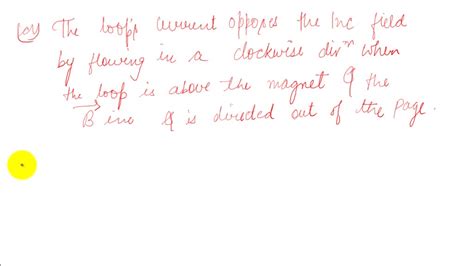 (a) The loop's current opposes the Inc field
by flowing in a clockwise dirⁿ when
the loop is above the magnet & the
B inc & is divided out of the page.